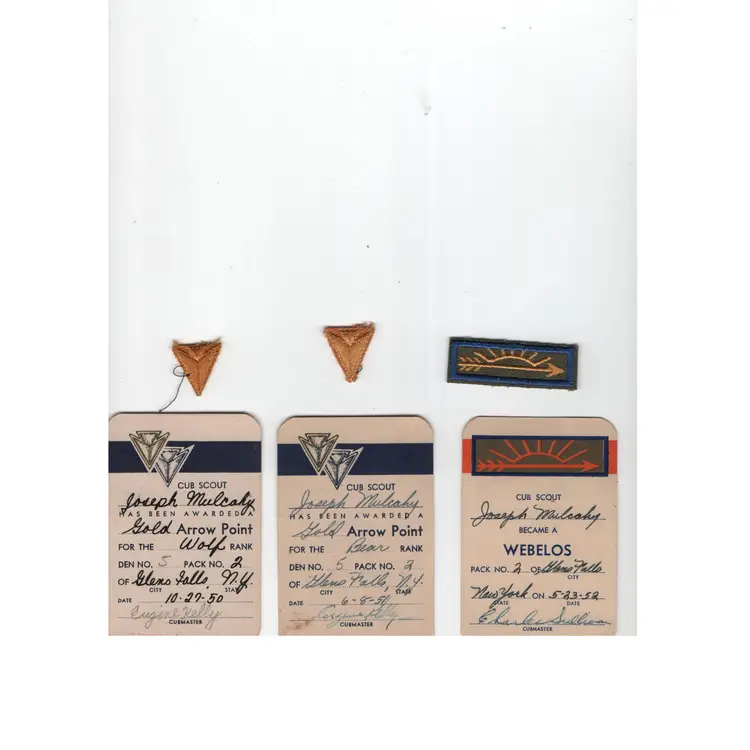 CUB SCOUT
Joseph Mulcahy
HAS BEEN AWARDED A
Gold Arrow Point
FOR THE Wolf RANK
DEN NO. 5 PACK NO. 2
OF Glens Falls, N.Y.
CITY STATE
DATE 10-27-50
Eugine Kelly
CUBMASTER
CUB SCOUT
Joseph Mulcahy
HAS BEEN AWARDED A
Gold Arrow Point
FOR THE Bear RANK
DEN NO. 5 PACK NO. 2
OF Glens Falls, N.Y.
CITY STATE
DATE 6-8-51
Eugine Kelly
CUBMASTER
CUB SCOUT
Joseph Mulcahy
BECAME A
WEBELOS
PACK NO. 2 OF Glens Falls
CITY
New York ON 5-23-52
STATE DATE
Charles Sullivan
CUBMASTER